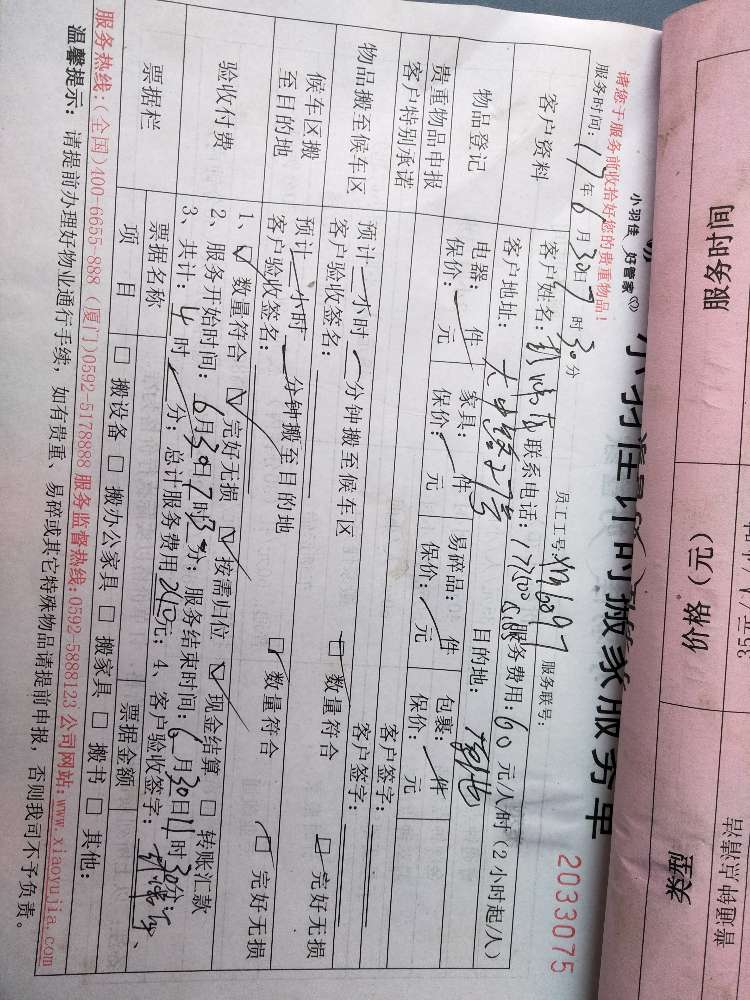 服务时间
价格（元）
类型
35元/人/小时
普通钟点清洁
小羽佳 好管家
小羽佳计时搬家服务单
请您于服务前收拾好您的贵重物品！
2033075
服务时间：17年6月30日7时30分
员工工号：XM6097
服务联号：
客户资料
客户姓名：
联系电话：
服务费用：60元/人/时（2小时起/人）
客户地址：
目的地：
物品登记
电器： 件
家具： 件
易碎品： 件
包裹： 件
贵重物品申报
保价： 元
保价： 元
保价： 元
保价： 元
客户特别承诺
客户签字：
物品搬至候车区
预计 小时 分钟搬至候车区
客户签字：
客户验收签名：
数量符合
完好无损
候车区搬至目的地
预计 小时 分钟搬至目的地
客户验收签名：
数量符合
完好无损
验收付费
1、 数量符合 完好无损 按需归位 现金结算 转账汇款
2、服务开始时间：6月30日7时30分；服务结束时间：6月30日11时30分；
3、共计：4时 分；总计服务费用240元；4、客户验收签字：
票据栏
票据名称
票据金额
项目
搬设备 搬办公家具 搬家具 搬书 其他：
服务热线：(全国)400-6655-888 (厦门)0592-5178888 服务监督热线：0592-5888123 公司网站：www.xiaoyujia.com
温馨提示：请提前办理好物业通行手续，如有贵重、易碎或其它特殊物品请提前申报，否则我司不予负责。